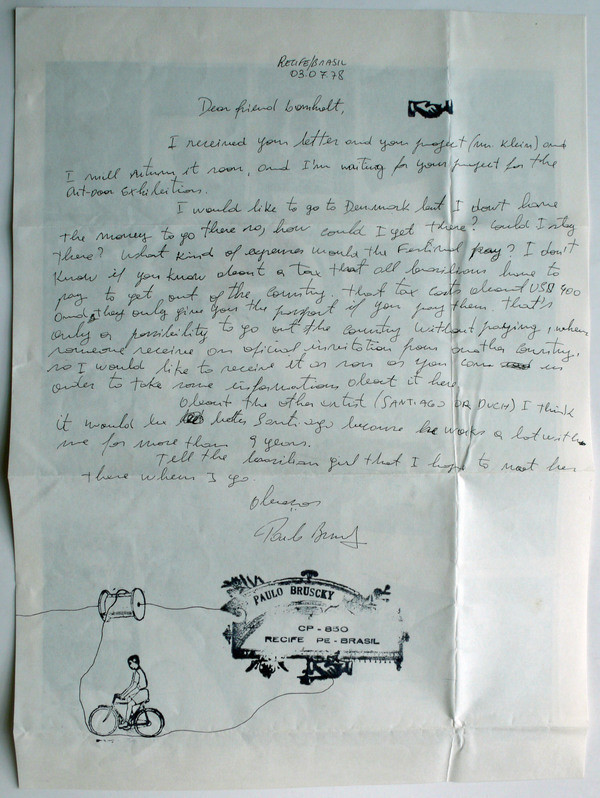 RECIFE/BRASIL
03.07.78
Dear friend
I received your letter and your project (mr. Klein) and
I will return it soon, and I'm waiting for your project for the
Art-door Exhibitions.
I would like to go to Denmark but I don't have
the money to go there so, how could I get there? Could I stay
there? What kind of expenses would the Festival pay? I don't
know if you know about a tax that all brasilians have to
pay to get out of the country. That tax costs about USD 900
and they only give you the passport if you pay them. That's
only a possibility to go out the country without paying, when
someone receive an oficial invitation from another country,
so I would like to receive it as soon as you can in
order to take some informations about it here.
About the other artist (SANTIAGO OR DUCH) I think
it would be better Santiago because he works a lot with
me for more than 9 years.
Tell the brasilian girl that I hope to meet her
there when I go.
Abraços
Paulo Bruscky
PAULO BRUSCKY
CP-850
RECIFE PE-BRASIL